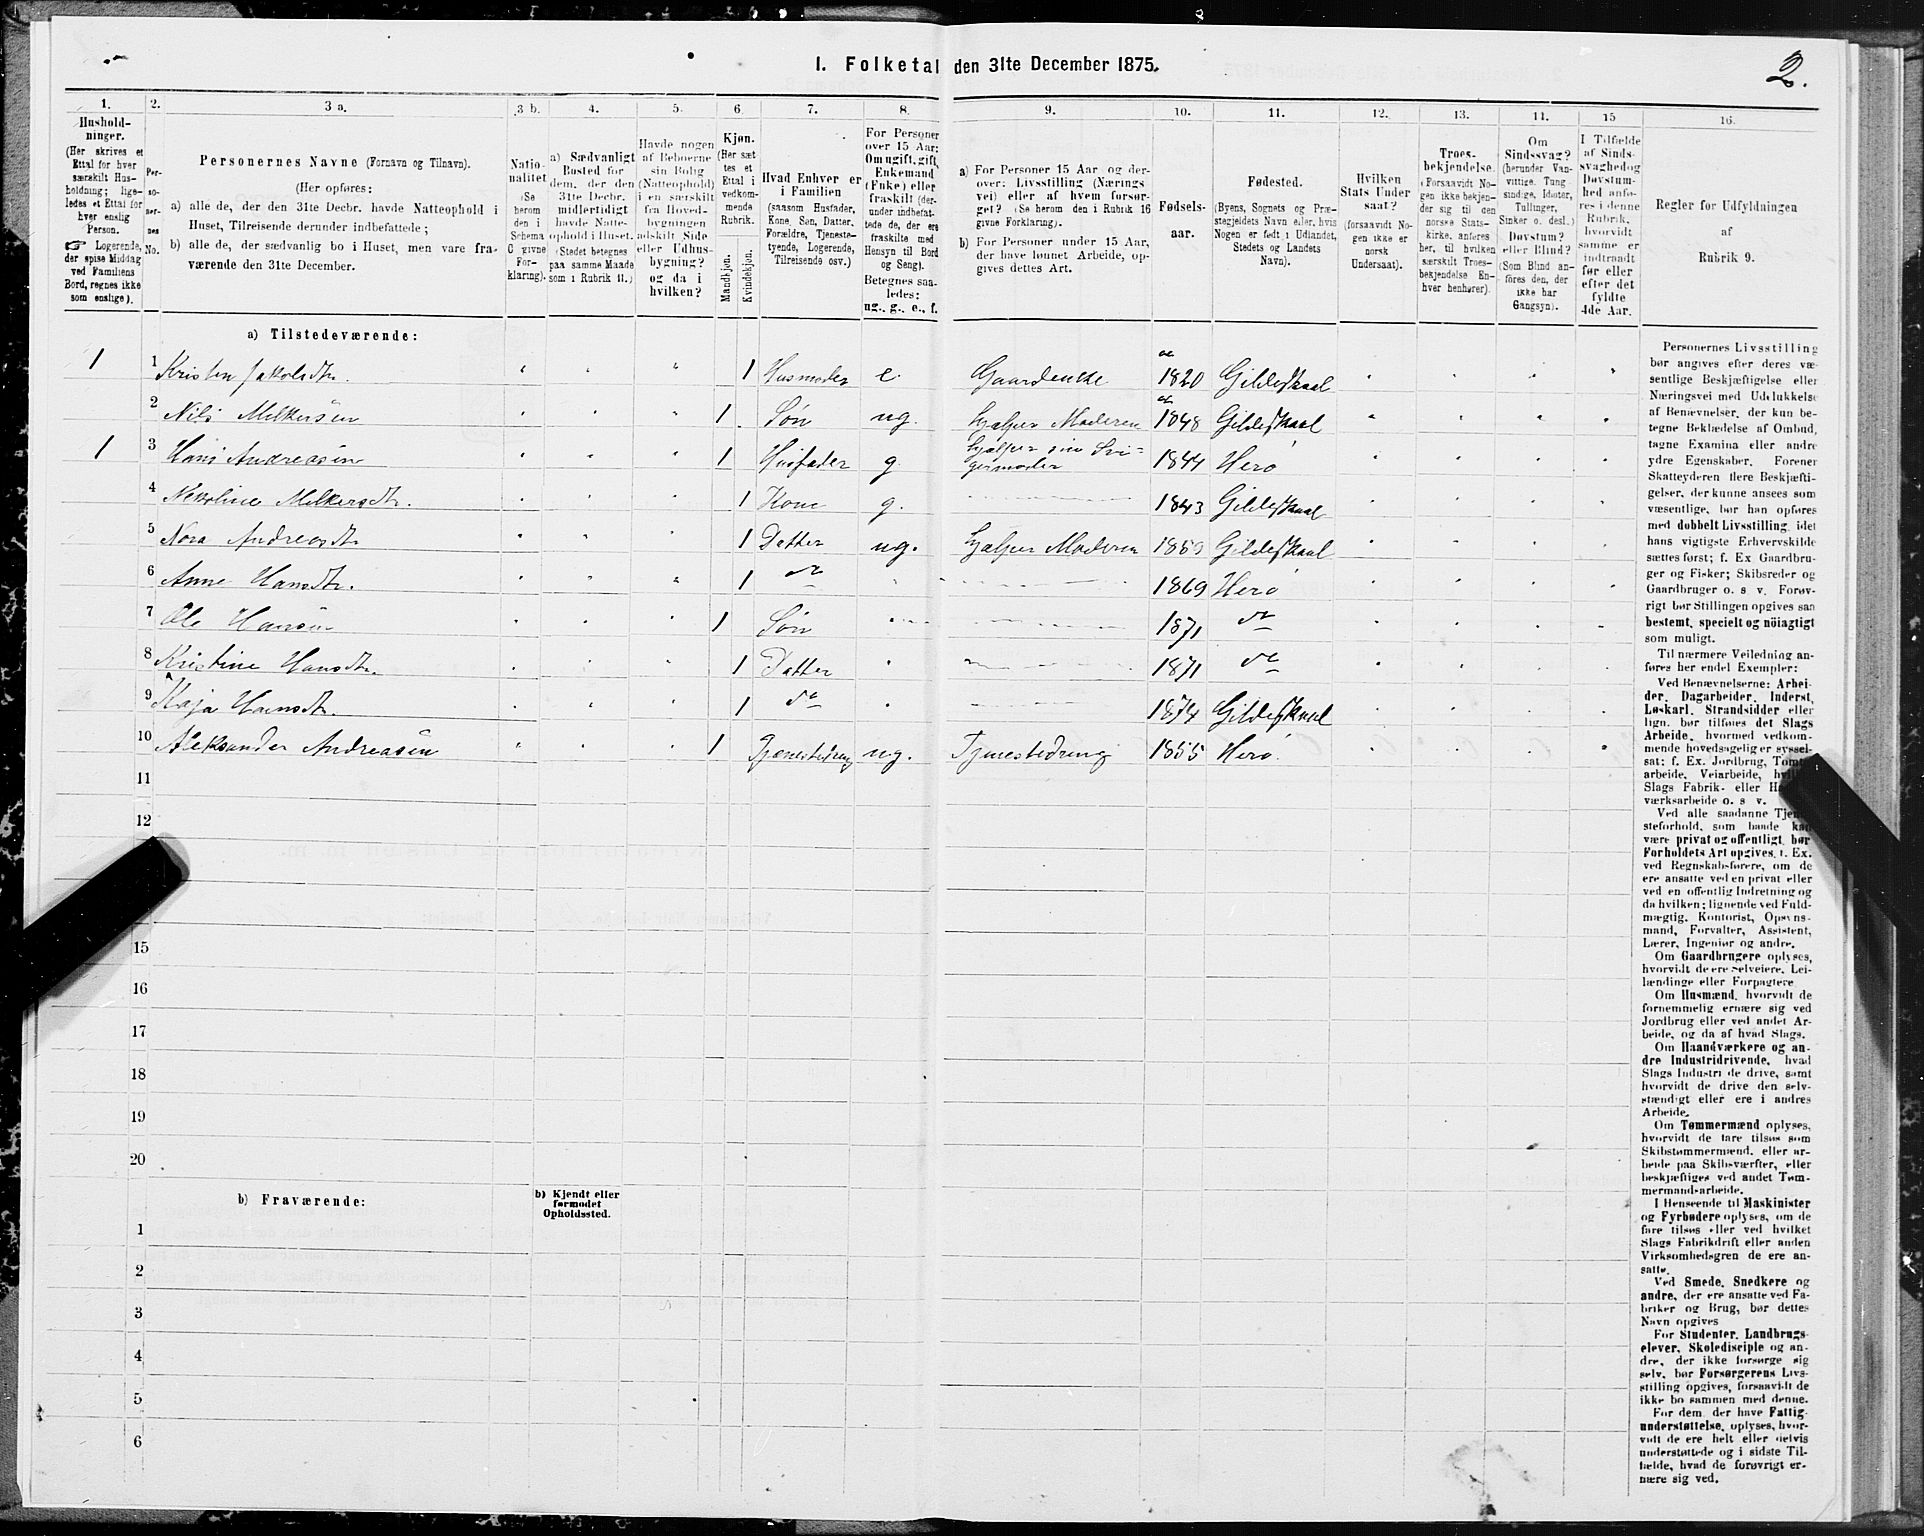 I. Folketal den 31te December 1875.
2.
1. 2. 3 a. 3 b. 4. 5. 6. 7. 8. 9. 10. 11. 12. 13. 14. 15 16.
Hushold-
ninger.
(Her skrives et
Ettal for hver
særskilt Hus-
holdning; lige-
ledes et Ettal for
hver enslig
Person.
☞ Logerende,
der spise Middag
ved Familiens
Bord, regnes ikke
som enslige).
Per-
so-
ner-
nes
No.
Personernes Navne (Fornavn og Tilnavn).
(Her opføres:
a) alle de, der den 31te Decbr. havde Natteophold i
Huset, Tilreisende derunder indbefattede;
b) alle de, der sædvanlig bo i Huset, men vare fra-
værende den 31te December.
Natio-
nalitet
(Se
herom
den i
Schema
G givne
For-
klaring).
a) Sædvanligt
Bosted for
dem, der den
31te Decbr.
midlertidigt
havde Natte-
ophold i Huset.
(Stedet betegnes
paa samme Maade
som i Rubrik 11.)
Havde nogen
af Beboerne
sin Bolig
(Natteophold)
i en særskilt
fra Hoved-
bygningen
adskilt Side
eller Udhus-
bygning?
og da i
hvilken?
Kjøn.
(Her sæt-
tes et
Ettal i
vedkom-
mende
Rubrik.
Mandkjøn.
Kvindekjøn.
Hvad Enhver er
i Familien
(saasom Husfader,
Kone, Søn, Datter,
Forældre, Tjeneste-
tyende, Logerende,
Tilreisende osv.)
For Personer
over 15 Aar:
Om ugift, gift,
Enkemand
(Enke) eller
fraskilt (der-
under indbefat-
tede de, der ere
fraskilte med
Hensyn til Bord
og Seng).
Betegnes saa-
ledes:
ug., g., e., f.
a) For Personer 15 Aar og der-
over: Livsstilling (Nærings-
vei) eller af hvem forsør-
get? (Se herom den i Rubrik 16
givne Forklaring).
b) For Personer under 15 Aar,
der have lønnet Arbeide, op-
gives dettes Art.
Fødsels-
aar.
Fødested.
(Byens, Sognets og Præ-
stegjeldets Navn eller, hvis
Nogen er født i Udlandet,
Stedets og Landets
Navn).
Hvilken
Stats Under
saat?
(forsaavidt No-
gen ikke er
norsk
Undersaat).
Troes-
bekjendelse.
(Forsaavidt No-
gen ikke bekjen-
der sig til den
norske Stats-
kirke, anføres
her, til hvilken
særskilt Troes-
bekjendelse En-
hver henhører).
Om
Sindssvag?
(herunder Van-
vittige, Tung-
sindige, Idioter,
Tullinger,
Sinker o. desl.)
Døvstum?
eller Blind?
(Som Blind an-
føres den, der
ikke har
Gangsyn).
I Tilfælde
af Sinds-
svaghed og
Døvstum-
hed anfø-
res i denne
Rubrik,
hvorvidt
samme er
indtraadt
før eller
efter det
fyldte
4de Aar.
Regler for Udfyldningen
af
Rubrik 9.
a) Tilstedeværende:
1 1 Kristen Jakobsdtr. 1 Husmoder e. Gaardenke 1820 Gildeskaal
2 Nils Melkersen 1 Søn ug. hjælper Moderen 1848 Gildeskaal
1 3 Hans Andreasen 1 Husfader g. hjælper sin Svi-
germoder 1844 Herø
4 Nekoline Melkersdtr. 1 Kone g. 1843 Gildeskaal
5 Nora Andreasdtr 1 Datter ug. hjælper Moderen 1859 Gildeskaal
6 Anne Hansdtr. 1 do 1869 Herø
7 Ole Hansen 1 Søn 1871 do
8 Kristine Hansdtr. 1 Datter 1871 do
9 Kaja Hansdtr. 1 do 1874 Gildeskaal
10 Aleksander Andreasen 1 Tjenestedreng ug. Tjenestedreng 1855 Herø.
11
12
15
16
17
18
19
20
b) Fraværende:
b) Kjendt eller
formodet
Opholdssted.
1
2
3
4
5
6
Personernes Livsstilling
bør angives efter deres væ-
sentlige Beskjæftigelse eller
Næringsvei med Udelukkelse
af Benævnelser, der kun be-
tegne Beklædelse af Ombud,
tagne Examina eller andre
ydre Egenskaber. Forener
Skatteyderen flere Beskjæfti-
gelser, der kunne ansees som
væsentlige, bør han opføres
med dobbelt Livsstilling, idet
hans vigtigste Erhvervskilde
sættes først; f. Ex Gaardbru-
ger og Fisker; Skibsreder og
Gaardbruger o. s v. Forøv-
rigt bør Stillingen opgives saa
bestemt, specielt og nöiagtigt
som muligt.
Til nærmere Veiledning an-
føres her endel Exempler:
Ved Benævnelserne: Arbei-
der, Dagarbeider, Inderst,
Løskarl, Strandsidder eller
lign. bør tilføies det Slags
Arbeide, hvormed vedkom-
mende hovedsagelig er syssel-
sat; f. Ex. Jordbrug, Tomte-
arbeide, Veiarbeide,
Slags Fabrik- eller
værksarbeide o. s v.
Ved alle saadanne
steforhold, som baade
være privat og offentligt, bør
Forholdets Art opgives, f. Ex.
ved Regnskabsførere, om de
ere ansatte ved en privat eller
ved en offentlig Indretning og
da hvilken; lignende ved Fuld-
mægtig, Kontorist, Opsyns-
mand, Forvalter, Assistent,
Lærer, Ingeniør og andre.
Om Gaardbrugere oplyses,
hvorvidt de ere Selveiere, Lei-
lændinge eller Forpagtere
Om Husmænd, hvorvidt de
fornemmelig ernære sig ved
Jordbrug eller ved andet Ar-
beide, og da af hvad Slags.
Om Haandværkere og an-
dre Industridrivende, hvad
Slags Industri de drive, samt
hvorvidt de drive den selv-
stændigt eller ere i andres
Arbeide.
Om Tømmermænd oplyses,
hvorvidt de fare tilsøs som
Skibstømmermænd, eller ar-
beide paa Skibsværfter, eller
beskjæftiges ved andet Tøm-
mermandsarbeide.
I Henseende til Maskinister
og Fyrbødere oplyses, om de
fare tilsøs eller ved hvilket
Slags Fabrikdrift eller anden
Virksomhedsgren de ere an-
satte.
Ved Smede, Snedkere og
andre, der ere ansatte ved Fa-
briker og Brug, bør dettes
Navn opgives
For Studenter, Landbrugs-
elever, Skoledisciple og an-
dre, der ikke forsørge sig
selv, bør Forsørgerens Livs-
stilling opgives, forsaavidt de
ikke bo sammen med denne.
For dem, der have Fattig-
understøttelse, oplyses, hvor-
vidt de ere helt eller delvis
understøttede og i sidste Til-
fælde, hvad de forøvrigt er-
nære sig ved.